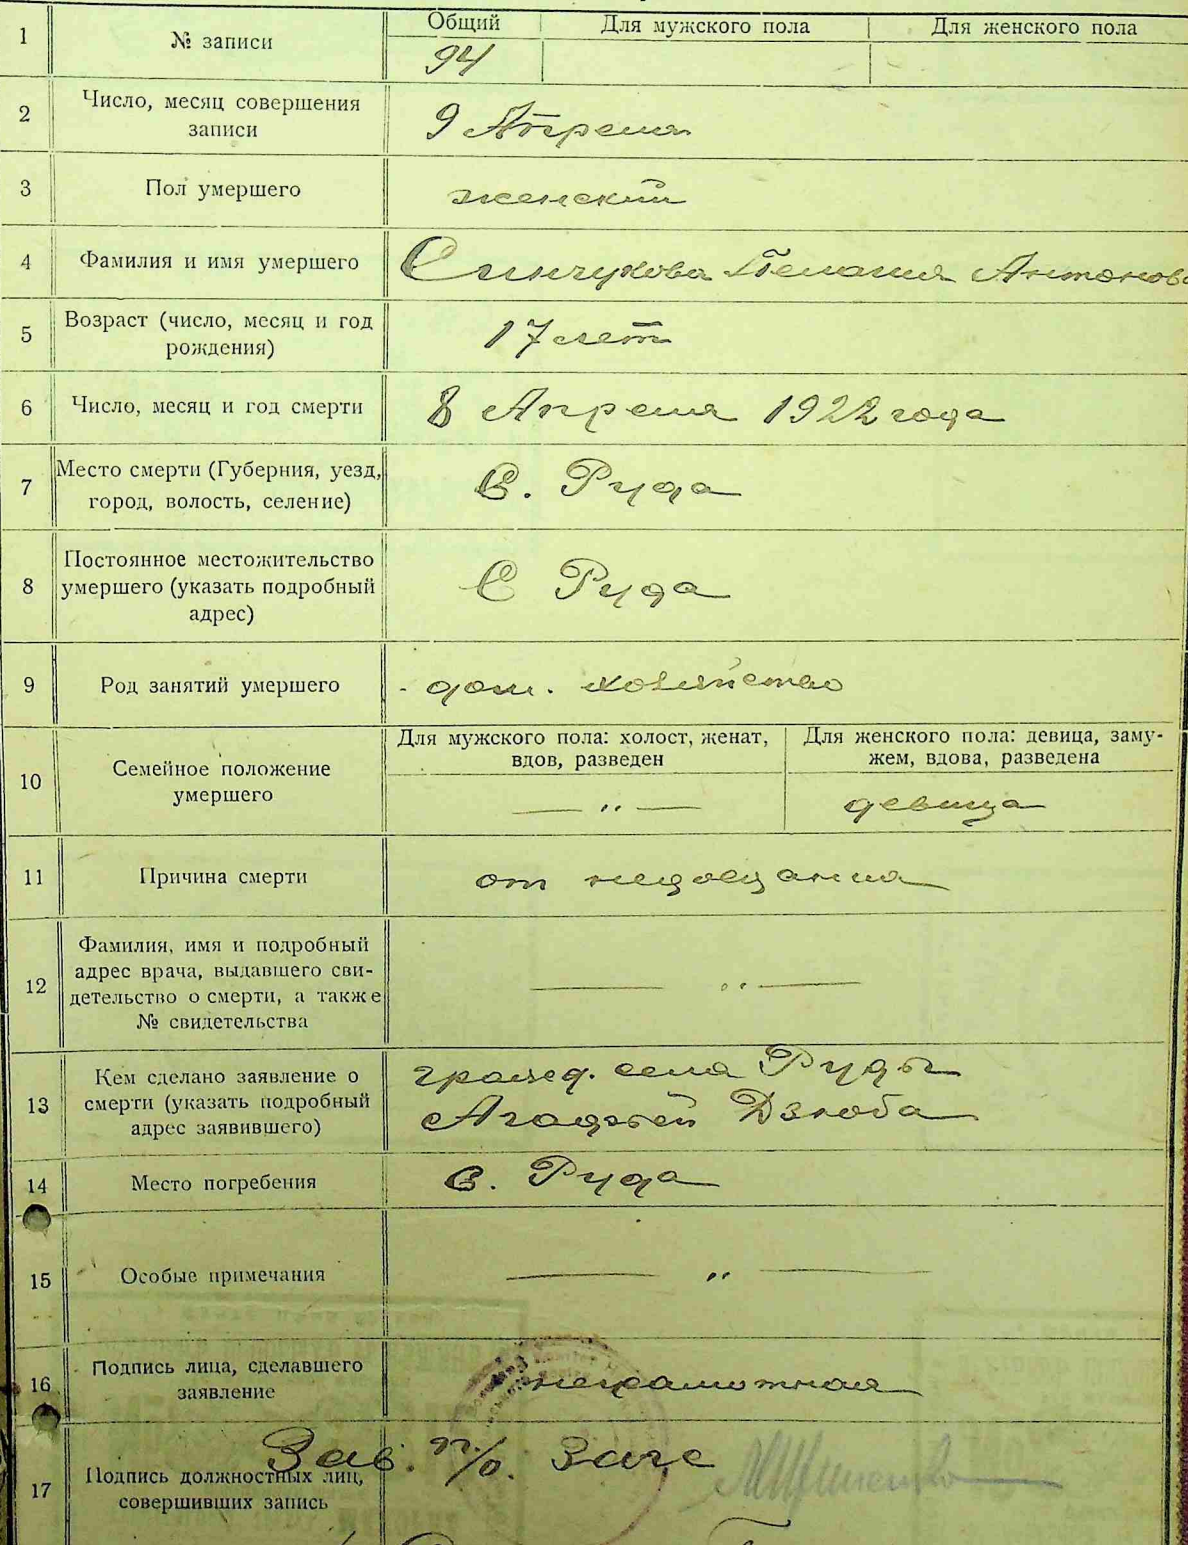 1 № записи Общий Для мужского пола Для женского пола
94
2 Число, месяц совершения
записи
9 Апреля
3 Пол умершего женский
4 Фамилия и имя умершего Пелагия Антонова
5 Возраст (число, месяц и год
рождения)
17 лет
6 Число, месяц и год смерти 8 Апреля 1922 года
7 Место смерти (Губерния, уезд,
город, волость, селение)
С. Руда
8 Постоянное местожительство
умершего (указать подробный
адрес)
С Руда
9 Род занятий умершего дом. хозяйство
10 Семейное положение
умершего
Для мужского пола: холост, женат,
вдов, разведен
— „ —
Для женского пола: девица, заму-
жем, вдова, разведена
девица
11 Причина смерти от недоедания
12 Фамилия, имя и подробный
адрес врача, выдавшего сви-
детельство о смерти, а также
№ свидетельства
— „ —
13 Кем сделано заявление о
смерти (указать подробный
адрес заявившего)
гражд. села Руды
Агафьей Дзюба
14 Место погребения с. Руда
15 Особые примечания — „ —
16 Подпись лица, сделавшего
заявление
неграмотная
17 Подпись должностных лиц,
совершивших запись
Зав. п/о. Загс